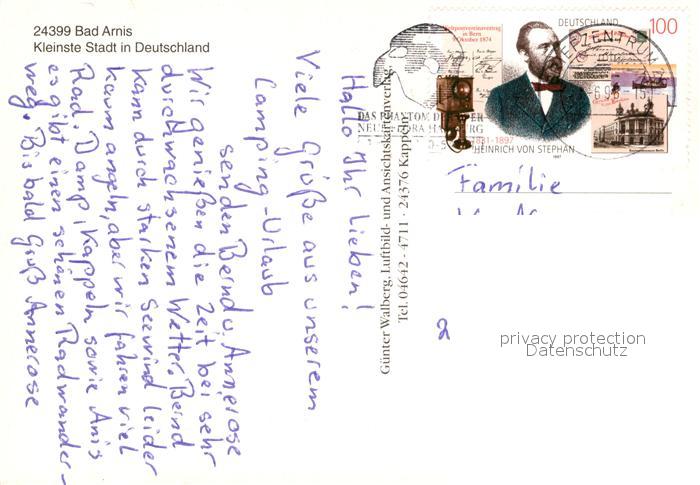 24399 Bad Arnis
Kleinste Stadt in Deutschland
Hallo Ihr Lieben!
Viele Grüße aus unserem
Camping-Urlaub
senden Bernd u. Annerose
Wir genießen die Zeit bei sehr
durchwachsenem Wetter. Bernd
kann durch starken Seewind leider
kaum angeln, aber wir fahren viel
Rad. Damp, Kappeln sowie Arnis
es gibt einen schönen Radwander-
weg. Bis bald Gruß Annerose
Günter Walberg, Luftbild- und Ansichtskartenverlag,
Tel. 04642 - 4711 · 24376 Kappeln
Weltpostvereinvertrag
in Bern
9. Oktober 1874
DEUTSCHLAND
100
1831-1897
HEINRICH VON STEPHAN
1997
DAS PHANTOM DER OPER
NEUE FLORA HAMBURG
Familie
2
privacy protection
Datenschutz